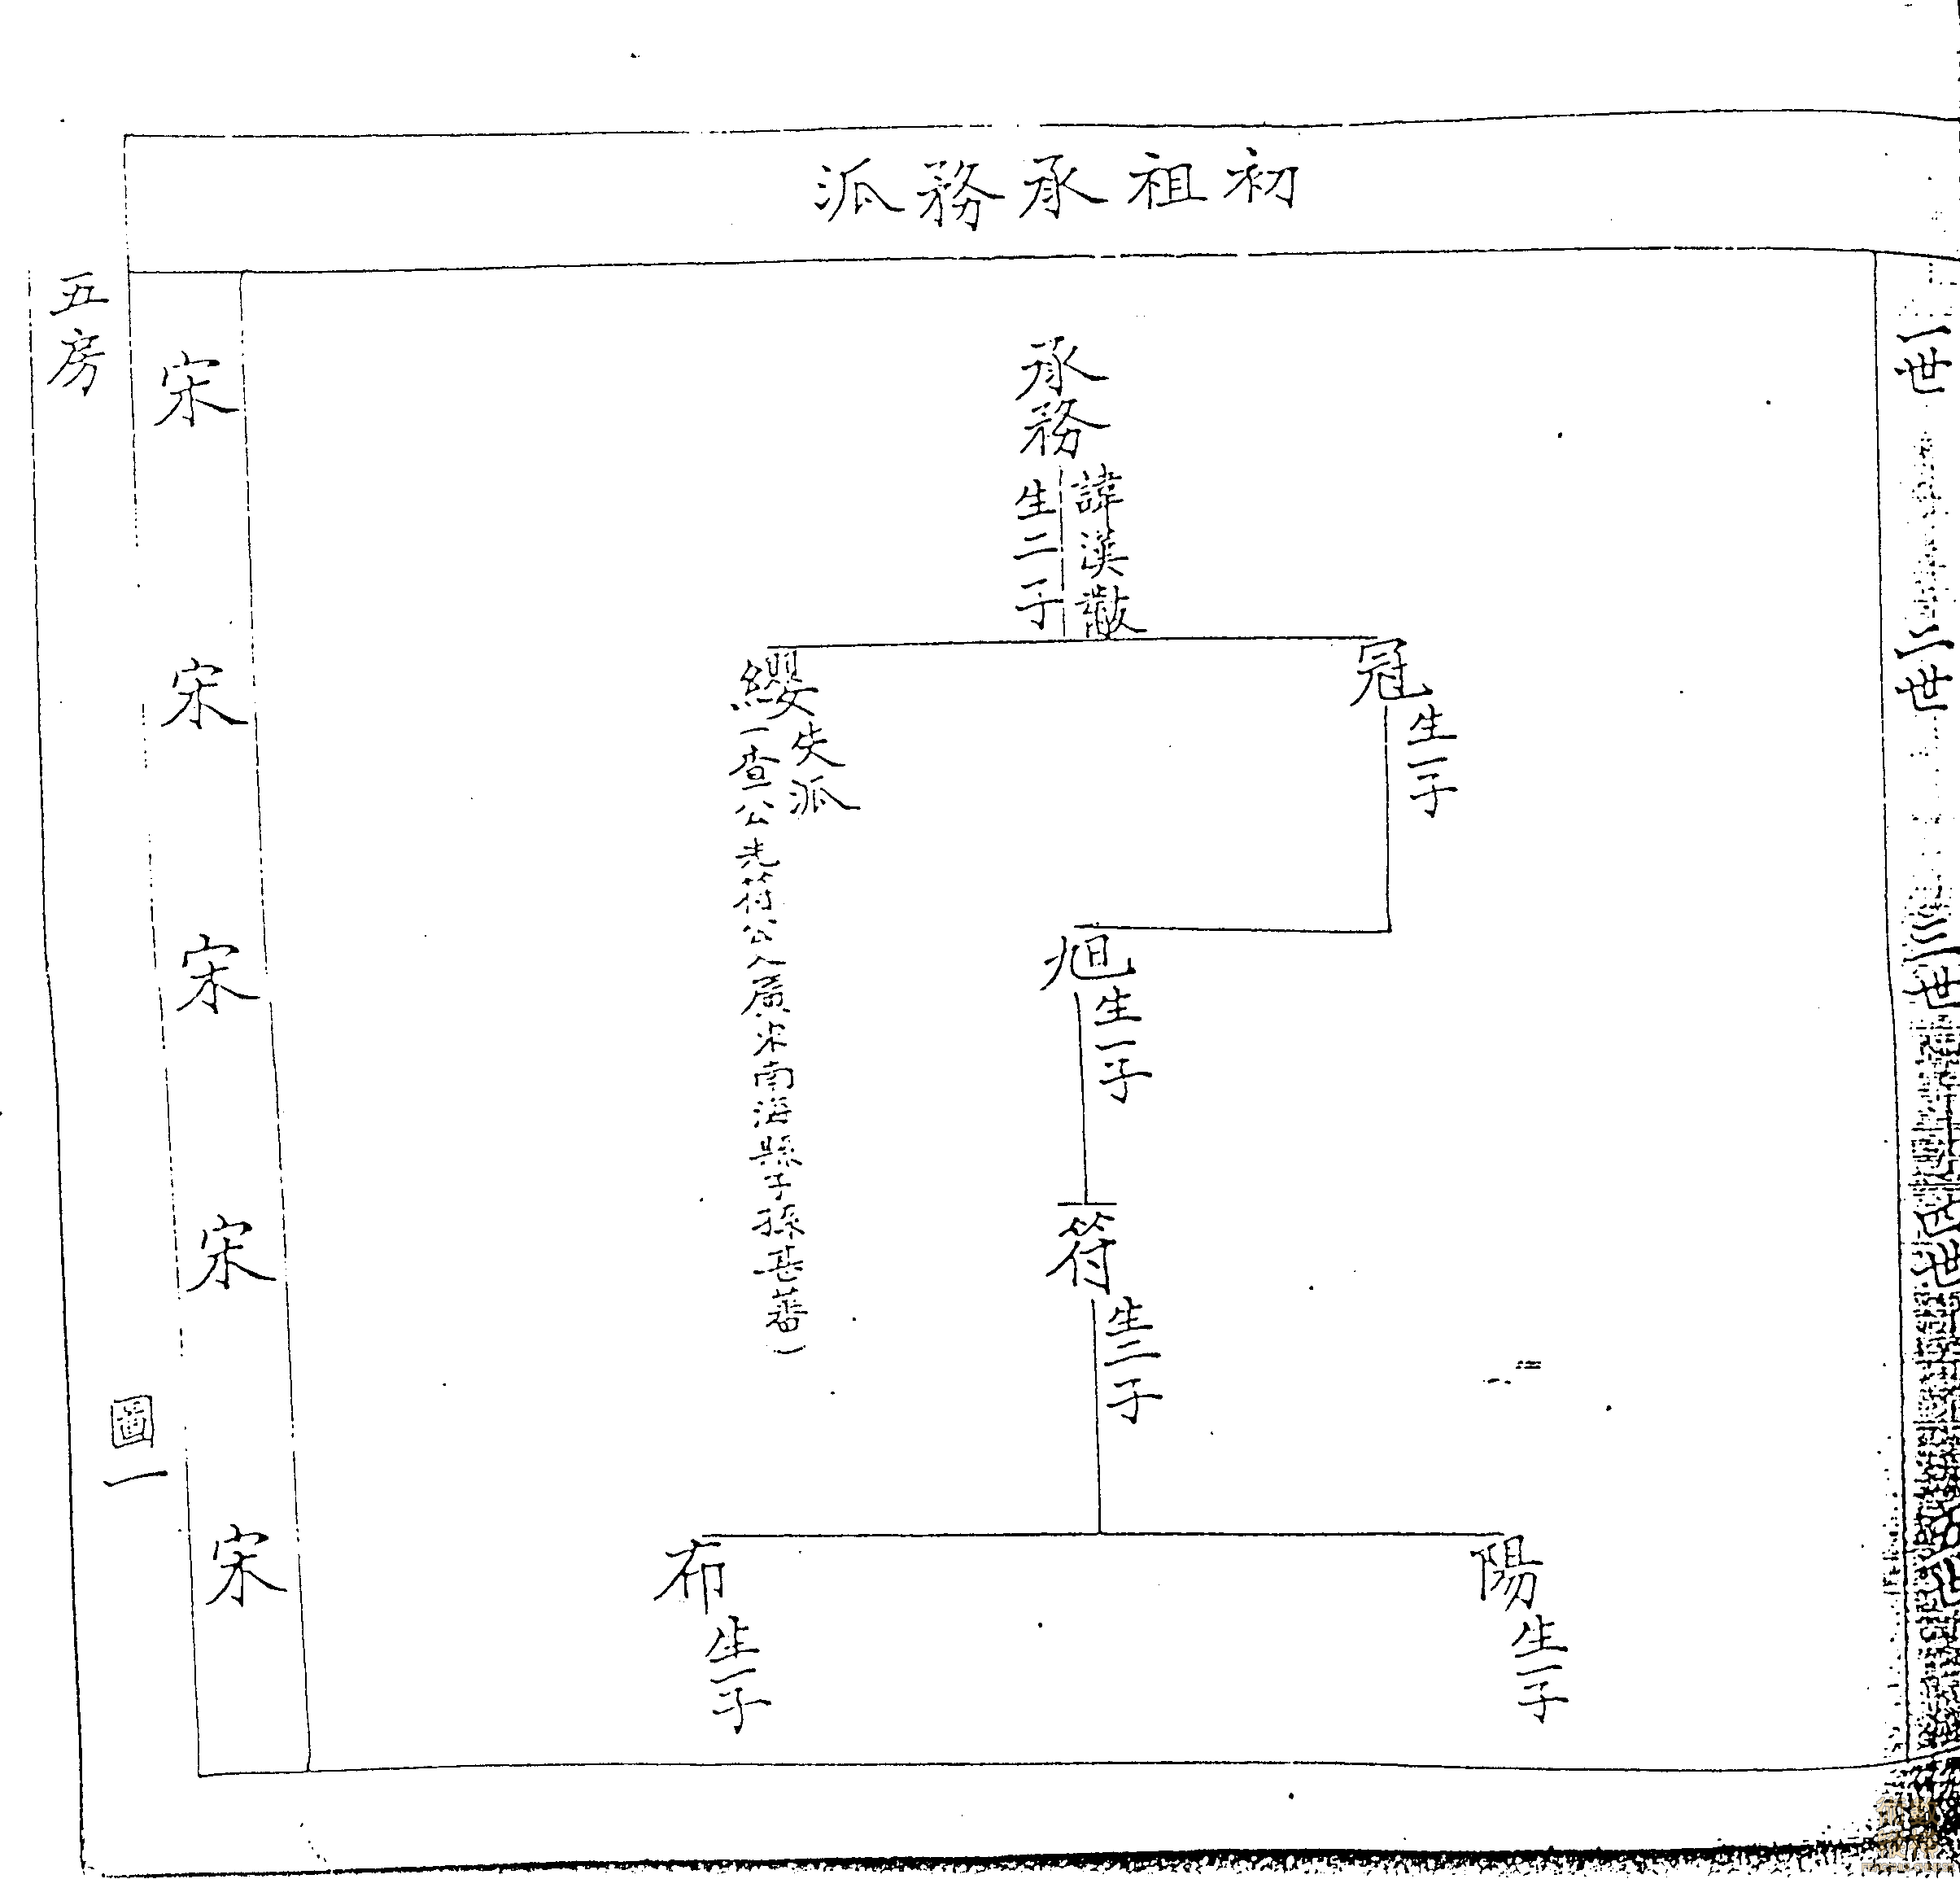 初祖承務派
一世
二世
三世
四世
五世
承務
諱漢黻
生二子
冠
生一子
纓
失派
(查公先符公入廣宋南海縣子孫甚蕃)
生一子
符
生二子
陽
生一子
布
生一子
宋
宋
宋
宋
宋
五房
圖一